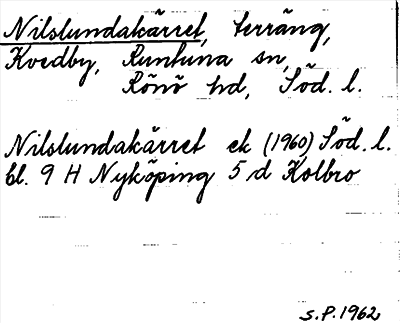 Nilslundakärret, terräng,
Kvedby, Runtuna sn,
Rönö hd, Söd. l.
Nilslundakärret ek (1960) Söd. l.
bl. 9 H Nyköping 5 d Kolbro
S.P. 1962